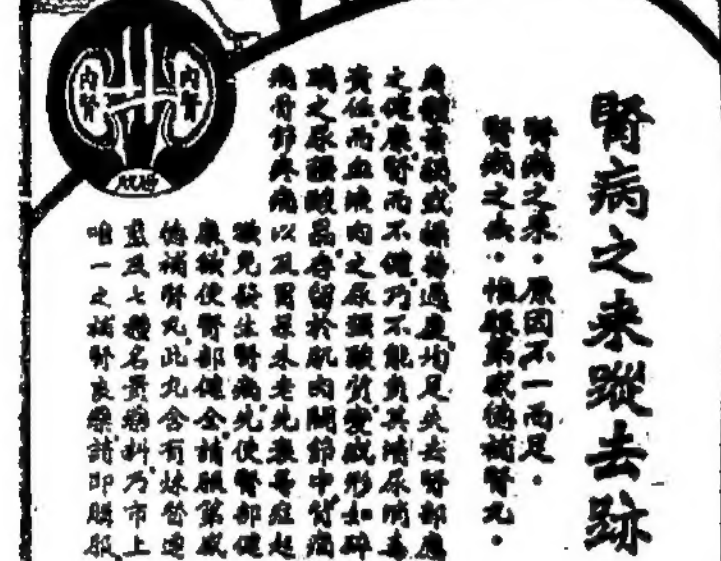 腎病之來蹤去跡
腎病之來。原因不一而足。
腎病之去。惟服第威德補腎丸。
身體衰弱或操勞過度均足失去腎部應
之健康腎而不健乃不能負其清尿消毒
責任而血液內之尿強酸質變成形如碎
璃之尿強酸晶存留於肌肉關節中背痛
病骨節疼痛以及胃尿未老先衰等症起
欲免發生腎病先使腎部健
康欲使腎部健全請服第威
德補腎丸此丸含有
藍及七種名貴藥料乃市上
唯一之補腎良藥請即購服
內腎
內腎
膀胱